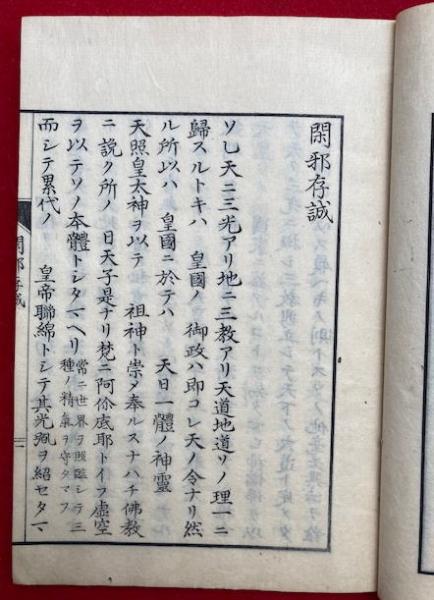 閑邪存誠
ソレ天ニ三光アリ地ニ三教アリ天道地道ソノ理一ニ
歸スルトキハ　皇國ノ　御政ハ即コレ天ノ令ナリ然
ル所以ハ　皇國ニ於テハ　天日一體ノ神靈
天照皇太神ヲ以テ　祖神ト崇メ奉ルスナハチ佛教
ニ説ク所ノ　日天子是ナリ梵ニ阿你底耶トイフ虚空
ヲ以テソノ本體トシタマヘリ常ニ世界ヲ照臨シテ三
種ノ精氣ヲ守タマフ
而シテ累代ノ　皇帝聯綿トシテ其光烈ヲ紹セタマ
閑邪存誠
一